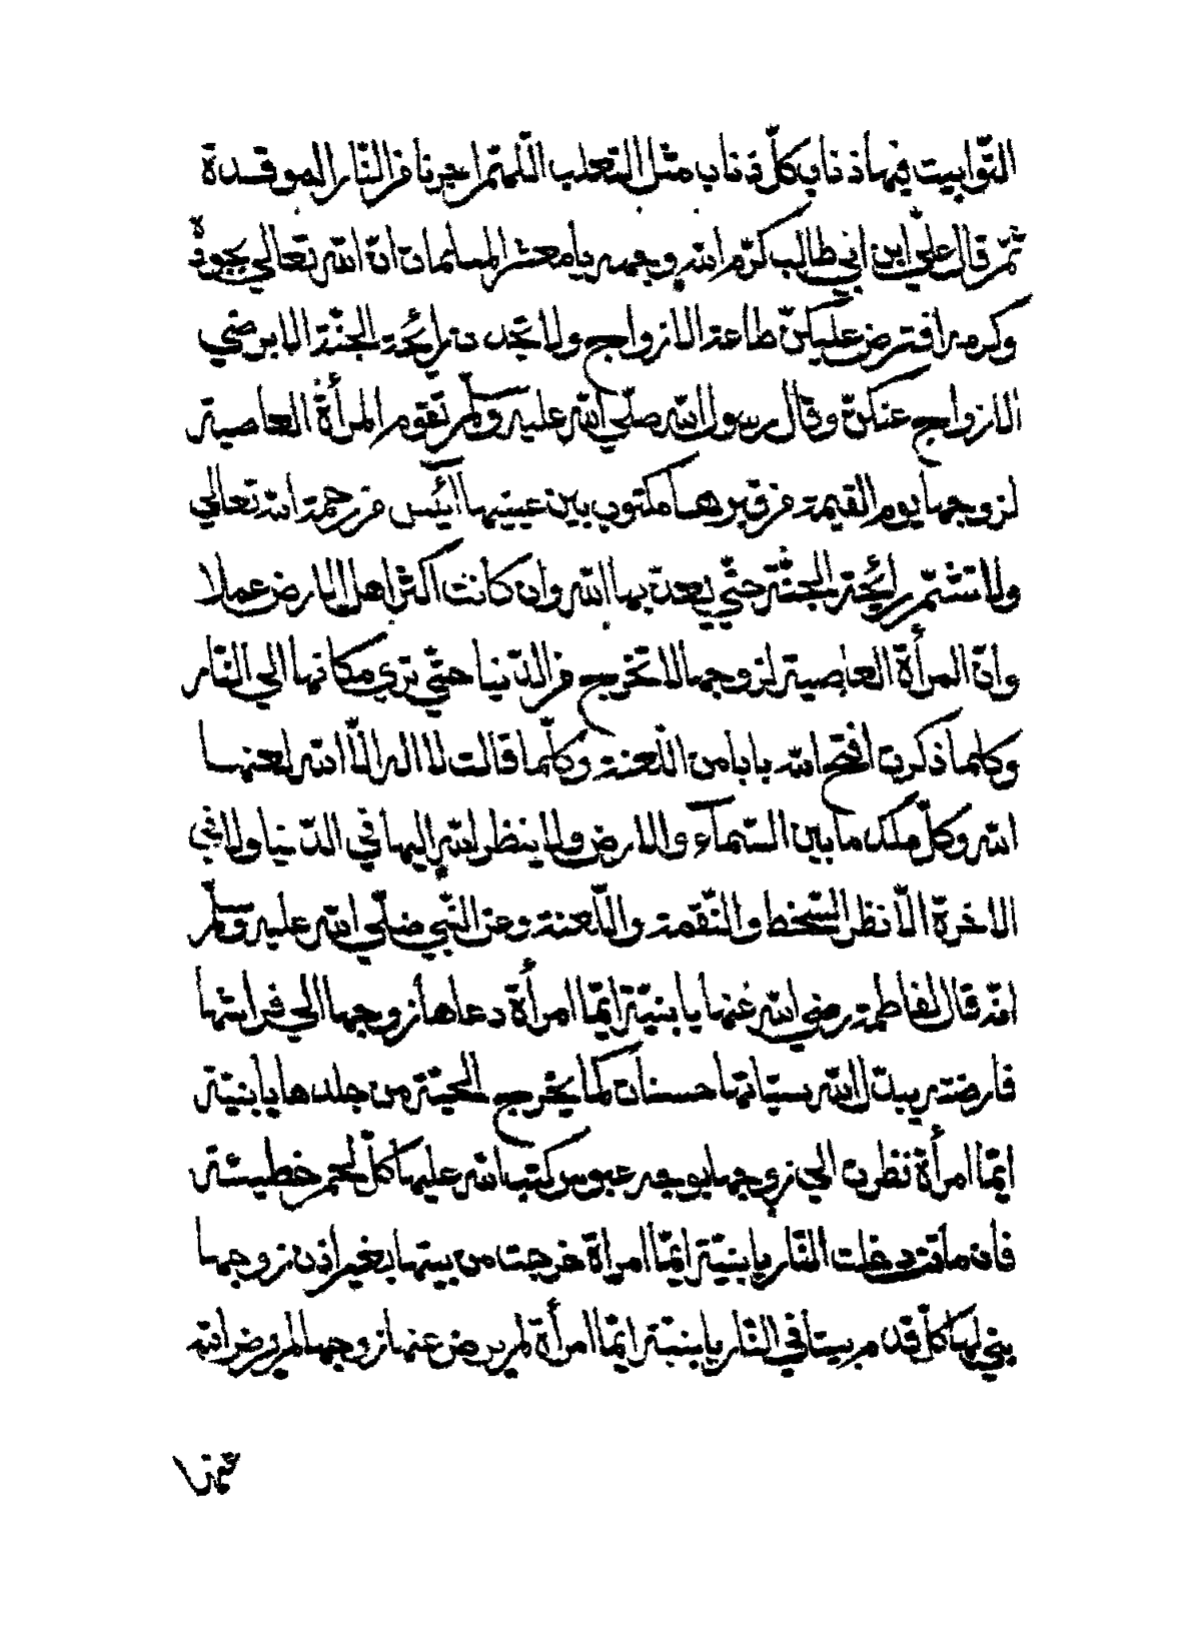 التّوابيت فيها ذناب كلّ ذناب مثل الثعلب اللّهمّ اجرنا من النّار الموقدة
ثمّ قال عليّ ابن ابي طالب كرّم الله وجهه يا معشر المسلمات انّ الله تعالي بجوده
وكرمه افترض عليكنّ طاعة الازواج ولا تجدن رائحة الجنّة الا برضي
الازواج عنكنّ وقال رسول الله صلّي الله عليه وسلّم تقوم المرأة العاصية
لزوجها يوم القيمة من قبرها مكتوب بين عينيها آئس من رحمة الله تعالي
ولا تشمّ رائحة الجنّة حتّي يعذّبها الله وان كانت اكثر اهل الارض عملا
وانّ المرأة العاصية لزوجها لا تخرج من الدّنيا حتّي تري مكانها الي النّار
وكلما ذكرت افتح الله بابا من اللّعنة وكلّما قالت لا اله الّا الله لعنها
الله وكلّ ملك ما بين السّمآء والارض ولا ينظر الله اليها في الدّنيا ولا في
الاخرة الّا نظر السّخط والنّقمة واللّعنة وعن النّبي صلّي الله عليه وسلّم
انّه قال لفاطمة رضي الله عنها يا بنيّة ايّما امرأة دعاها زوجها الي فراشها
فارضته يبدّل الله سيّاتها حسنات كما يخرج الحيّة من جلدها يا بنيّة
ايّما امرأة نظرت الي زوجها بوجه عبوس كتب الله عليها كلّ لحم خطيئة
فان ماتت دخلت النّار يا بنيّة ايّما امراة خرجت من بيتها بغير اذن زوجها
بني لها كلّ قدم بيتا في النّار يا بنيّة ايّما امرأة لم يرض عنها زوجها لم يرض الله